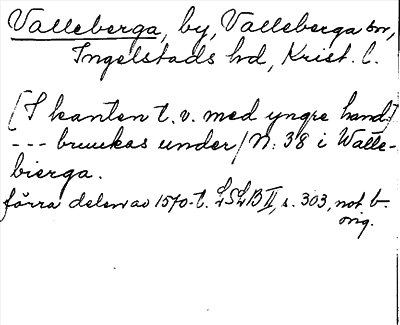 Valleberga, by, Valleberga sn,
Ingelstads hd, Krist. l.
[I kanten t. v. med yngre hand]
--- bruukas under / N: 38 i Walle-
bierga.
förra delen av 1570-t. LSLB II, s. 303, not b.
orig.